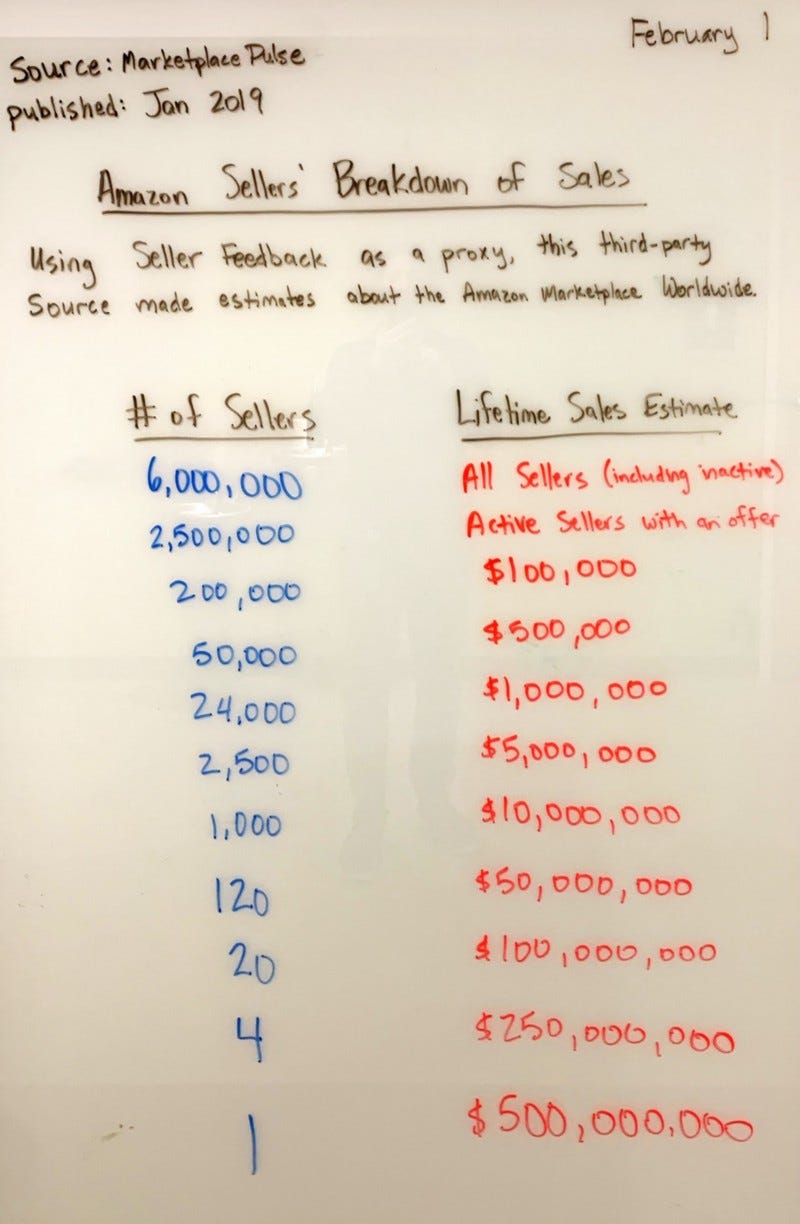 February 1
Source: Marketplace Pulse
published: Jan 2019
Amazon Sellers' Breakdown of Sales
Using Seller Feedback as a proxy, this third-party
Source made estimates about the Amazon Marketplace Worldwide.
# of Sellers Lifetime Sales Estimate
6,000,000 All Sellers (including inactive)
2,500,000 Active Sellers with an offer
200,000 $100,000
50,000 $500,000
24,000 $1,000,000
2,500 $5,000,000
1,000 $10,000,000
120 $50,000,000
20 $100,000,000
4 $250,000,000
1 $500,000,000